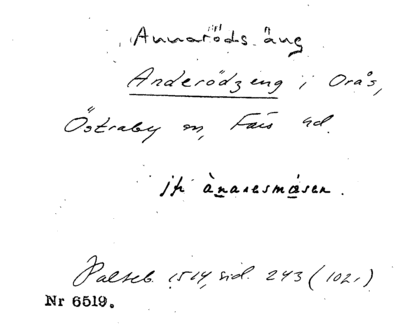 Annaröds äng
Anderödzeng i Orås,
Östraby sn, Färs hd.
jfr ànaresmåsen.
Palteb. 1514, sid. 243 (102.)
Nr 6519.